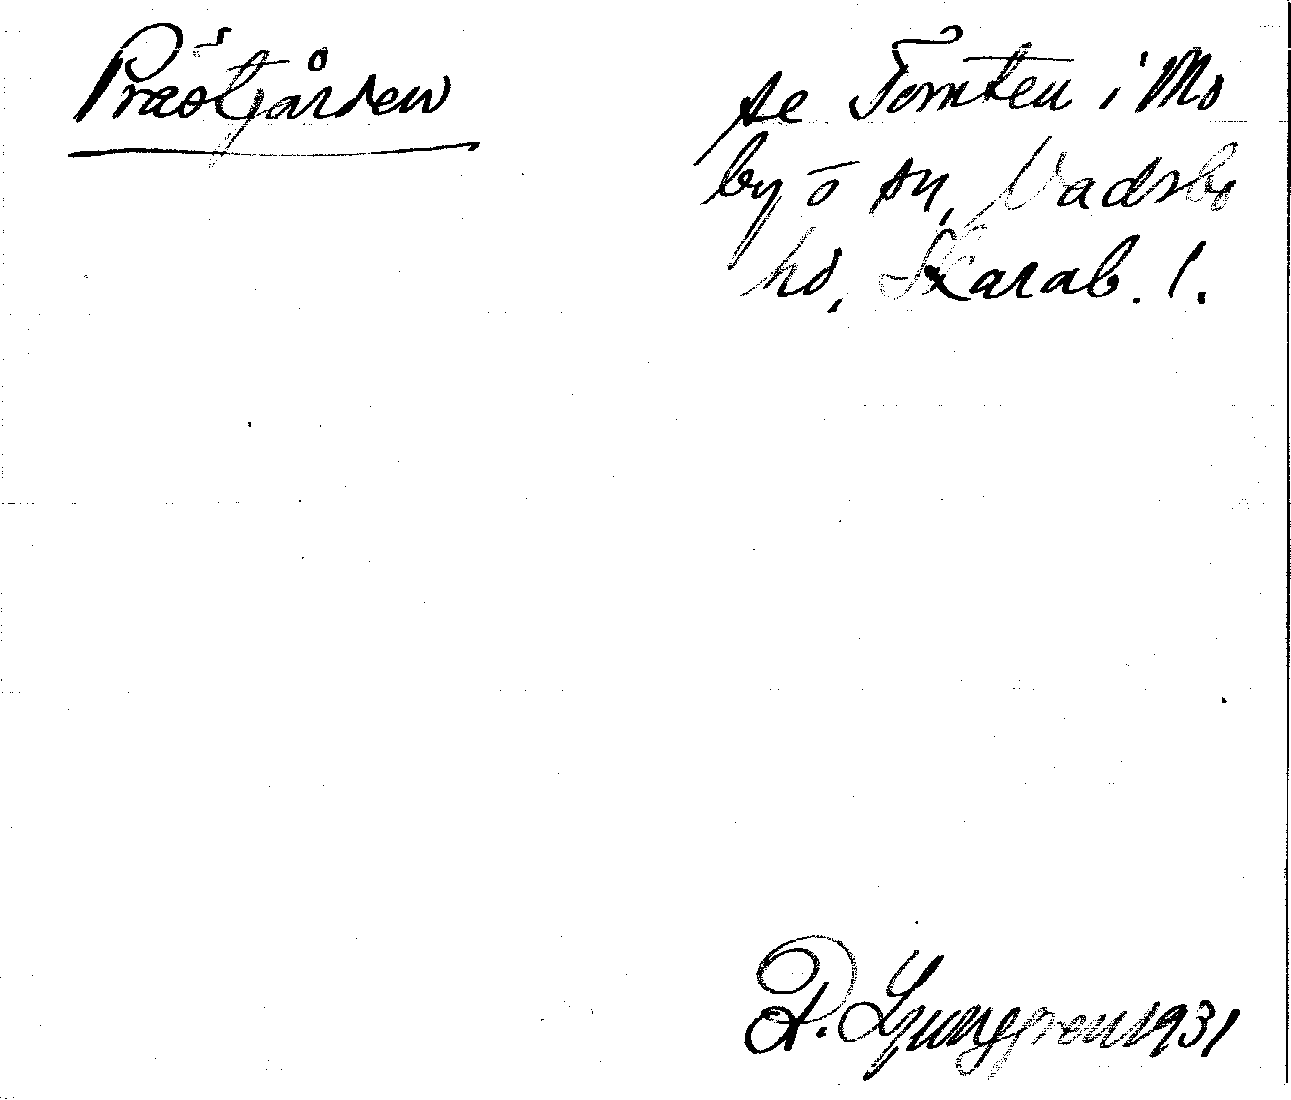 Prästgården
se Tomten i Mo
by o sn, Vadsbo
hd, Skarab. l.
R. Ljunggren 1931